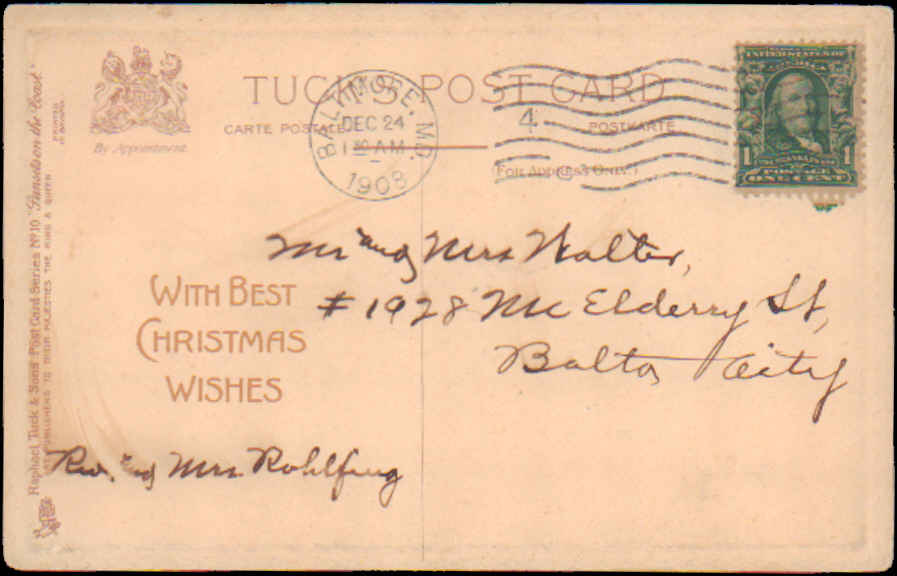 TUCK'S POST CARD
CARTE POSTALE POSTKARTE
(FOR ADDRESS ONLY.)
By Appointment.
BALTIMORE, MD.
DEC 24
1 30 AM
1908
4
UNITED STATES OF AMERICA
1 1
POSTAGE
ONE CENT
Raphael Tuck & Sons' Post Card Series No 10 "Sunset on the Coast."
ART PUBLISHERS TO THEIR MAJESTIES THE KING & QUEEN
Mr and Mrs Walter,
# 1928 Mc Elderry St,
Balto City
WITH BEST
CHRISTMAS
WISHES
Rev. and Mrs Rohlfing